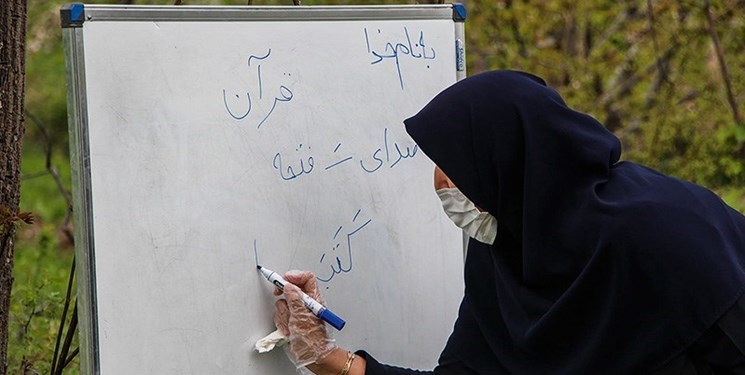 بنام خدا
قرآن
صدای ـَ فتحه
کَتَبَ ا